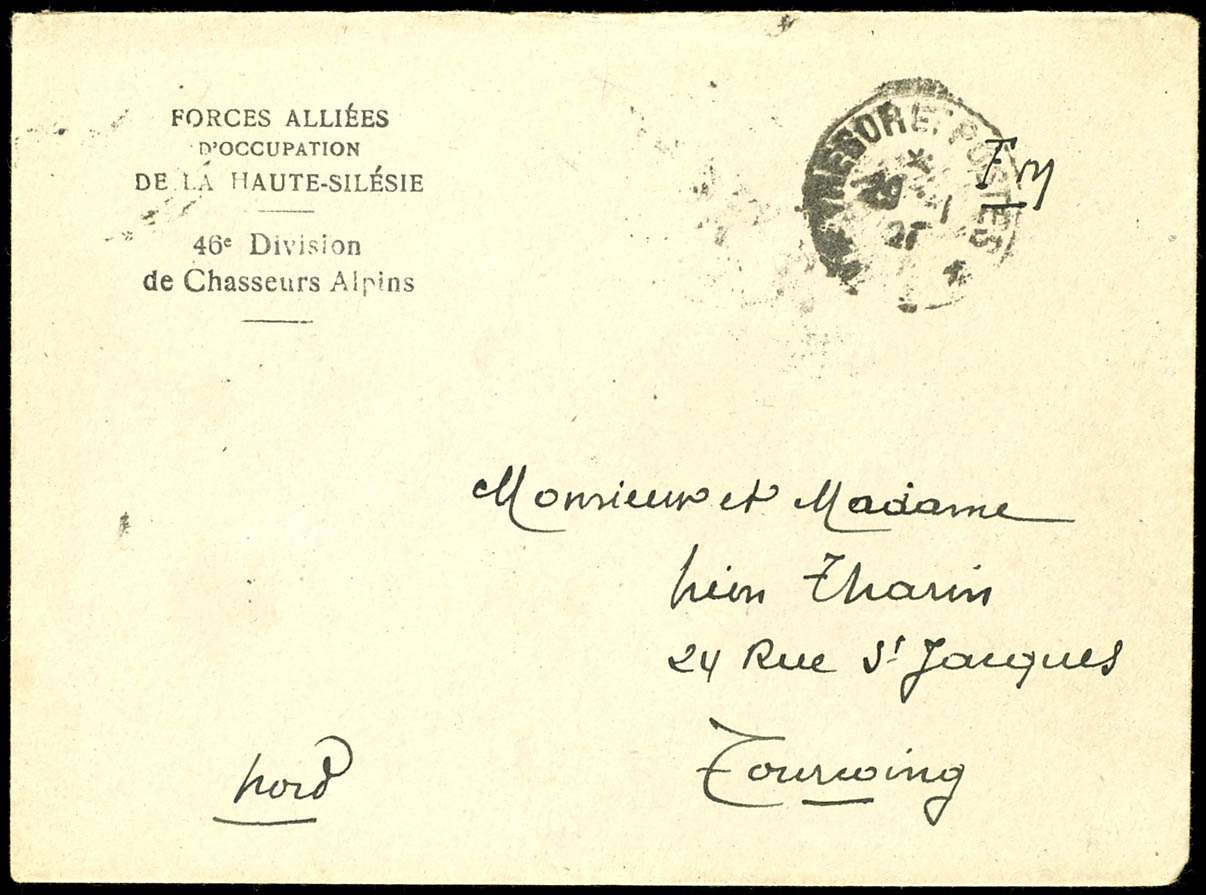 FORCES ALLIÉES
D'OCCUPATION
DE LA HAUTE-SILÉSIE
46e Division
de Chasseurs Alpins
TRESOR ET POSTES
Monsieur et Madame
Tharin
24 Rue St Jacques
Tourcoing
Nord